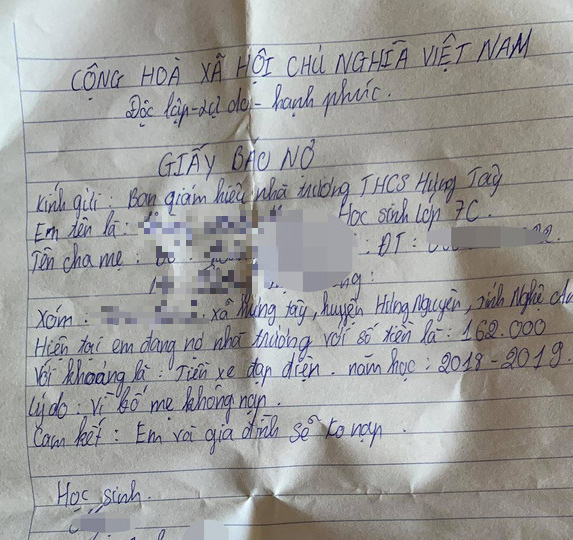 CỘNG HOÀ XÃ HỘI CHỦ NGHĨA VIỆT NAM
Độc lập - tự do - hạnh phúc.
GIẤY BÁO NỞ
Kính gửi: Ban giám hiệu nhà trường THCS Hưng Tây
Em tên là: Học sinh lớp 7C.
Tên cha mẹ: ĐT:
Xóm: xã Hưng tây, huyện Hưng Nguyên, tỉnh Nghệ An
Hiện tại em đang nợ nhà trường với số tiền là: 162.000
Với khoảng là: Tiền xe đạp điện. năm học: 2018-2019.
Lý do: vì bố mẹ không nạp.
Cam kết: Em và gia đình sẽ ko nạp
Học sinh.